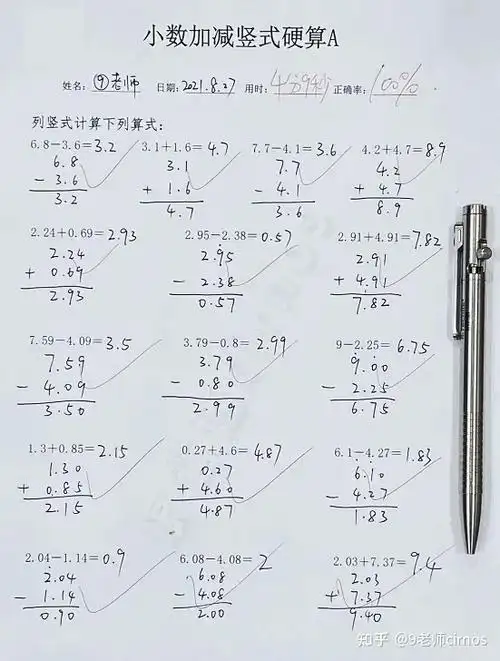 小数加减竖式硬算A
姓名: ⑨老师 日期: 2021.8.27 用时: 4分9秒 正确率: 100%
列竖式计算下列算式:
6.8-3.6=3.2 3.1+1.6=4.7 7.7-4.1=3.6 4.2+4.7=8.9
6.8 3.1 7.7 4.2
-3.6 +1.6 -4.1 +4.7
3.2 4.7 3.6 8.9
2.24+0.69=2.93 2.95-2.38=0.57 2.91+4.91=7.82
2.24 2.95 2.91
+0.69 -2.38 +4.91
2.93 0.57 7.82
7.59-4.09=3.5 3.79-0.8=2.99 9-2.25=6.75
7.59 3.79 9.00
-4.09 -0.80 -2.25
3.50 2.99 6.75
1.3+0.85=2.15 0.27+4.6=4.87 6.1-4.27=1.83
1.30 0.27 6.10
+0.85 +4.60 -4.27
2.15 4.87 1.83
2.04-1.14=0.9 6.08-4.08=2 2.03+7.37=9.4
2.04 6.08 2.03
-1.14 -4.08 +7.37
0.90 2.00 9.40
知乎 @9老师cirnos